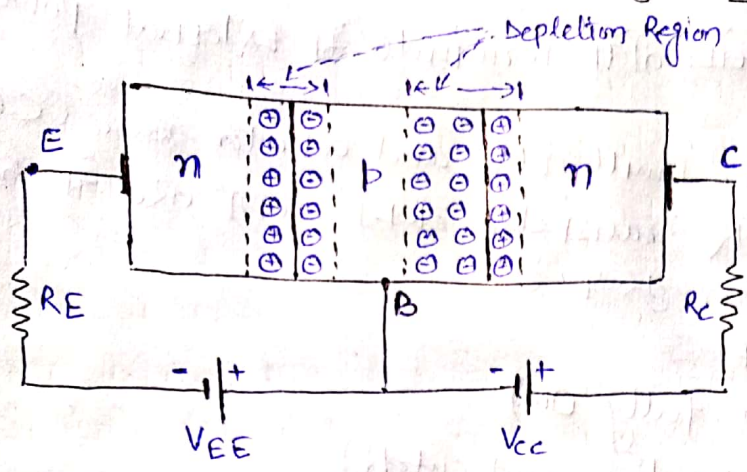 Depletion Region
E
n
p
n
C
B
RE
RC
- +
- +
VEE
VCC